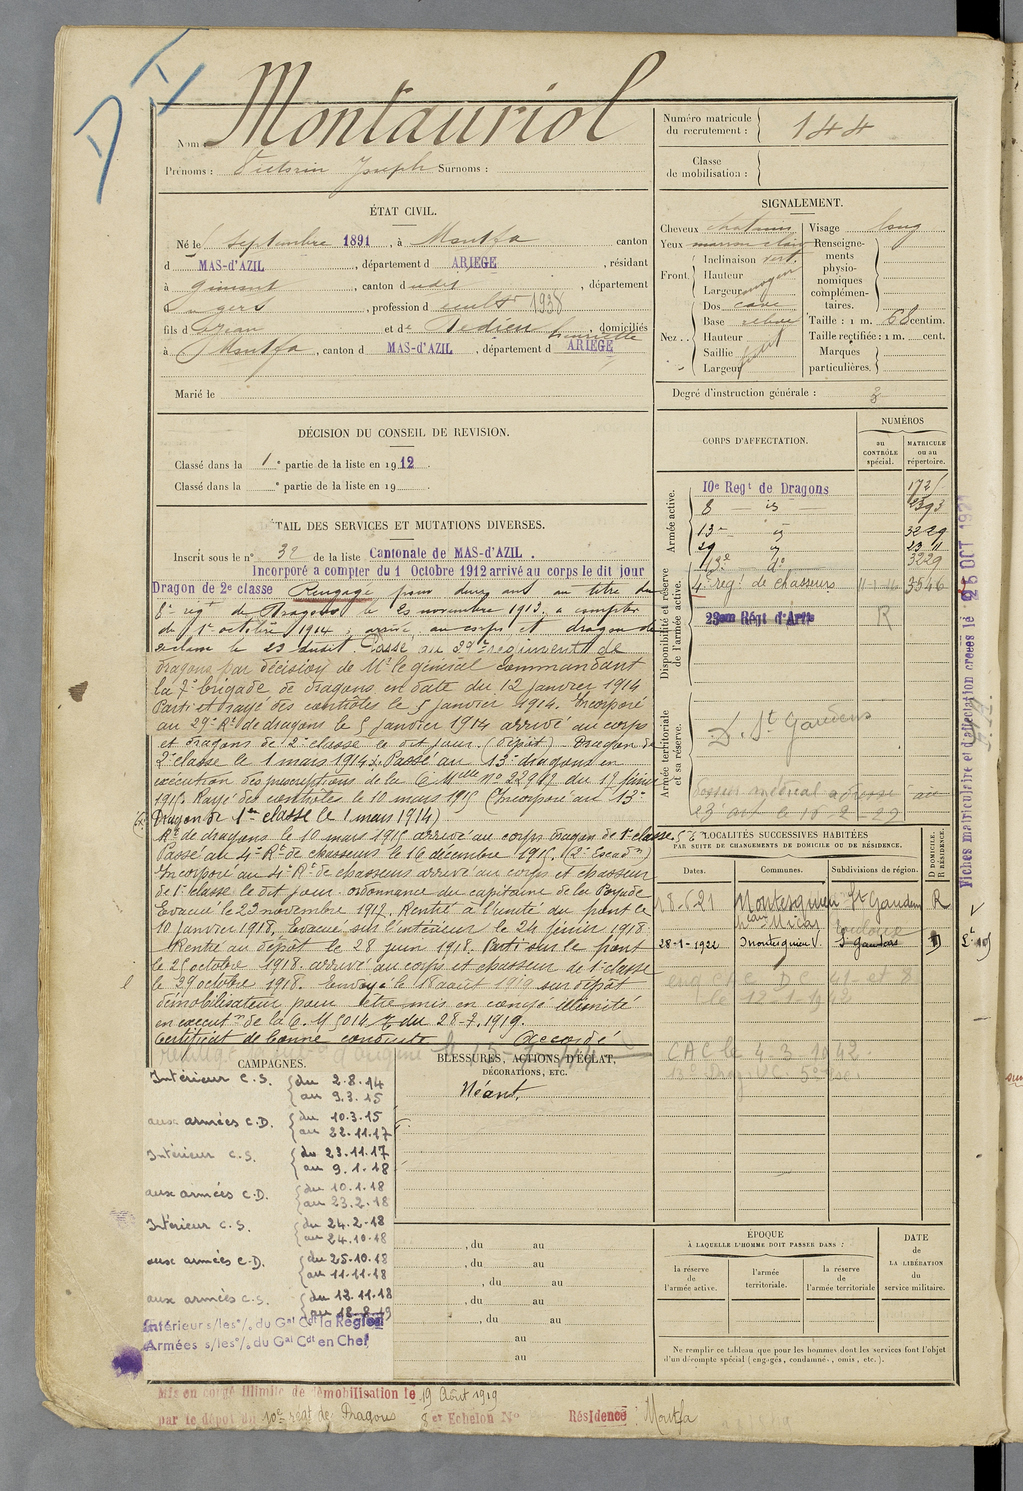 Montauriol
Nom
Prénoms : Joseph Surnoms :
Numéro matricule
du recrutement : 144
Classe
de mobilisation :
ÉTAT CIVIL.
Né le septembre 1891, à Montfa canton
d MAS-d'AZIL, département d ARIÈGE, résidant
à Gimont, canton dudit, département
d gers, profession d cult 1938
fils d Jean et de Dedieu Henriette, domiciliés
à Montfa, canton d MAS-d'AZIL, département d ARIÈGE
Marié le
SIGNALEMENT.
Cheveux chatains Visage long
Yeux marron clair Renseigne-
ments
physio-
nomiques
complémen-
taires.
Front. Inclinaison vert.
Hauteur
Largeur moyen
Nez .. Dos cave
Base
Hauteur
Saillie
Largeur
Taille : 1 m. 68 centim.
Taille rectifiée : 1 m. cent.
Marques
particulières.
Degré d'instruction générale : 3
DÉCISION DU CONSEIL DE REVISION.
Classé dans la 1e partie de la liste en 1912.
Classé dans la e partie de la liste en 19
DÉTAIL DES SERVICES ET MUTATIONS DIVERSES.
Inscrit sous le n° 32 de la liste Cantonale de MAS-d'AZIL.
Incorporé a compter du 1 Octobre 1912 arrivé au corps le dit jour
Dragon de 2e classe Rengagé pour deux ans au titre du
8e rég de Dragons le 20 novembre 1913 a compter
du 1er octobre 1914, arrivé au corps et dragon de
2e classe le 23 dudit. Passé au 29e régiment de
dragons par décision de Mr le général commandant
la 7e brigade de dragons en date du 12 janvier 1914
Parti et rayé des contrôles le 5 janvier 1914. Incorporé
au 29e Rt de dragons le 5 janvier 1914 arrivé au corps
et dragons de 2e classe le dit jour. (dépôt) Dragon de
2e classe le 1 mars 1914. Passé au 13e dragons en
exécution des prescriptions de la C Mlle No du 17 février
1915. Rayé des contrôles le 10 mars 1915 (Incorporé au 13e
Dragon de 1re classe le 1 mars 1914)
Rt de dragons le 10 mars 1915 arrivé au corps dragon de 1e classe
Passé au 4e Rt de chasseurs le 16 décembre 1915. (2e Escadn)
Incorporé au 4e Rt de chasseurs arrivé au corps et chasseur
de 1e classe le dit jour. ordonnance du capitaine de la
Evacué le 23 novembre 1917. Rentré à l'unité du front le
10 janvier 1918. Evacué sur l'intérieur le 24 février 1918
Rentré au dépôt le 28 juin 1918. Parti sur le front
le 25 octobre 1918. arrivé au corps et chasseur de 1e classe
le 29 octobre 1918. Envoyé le 18 août 1919 sur dépôt
démobilisateur pour être mis en congé illimité
en exécutn de la C. M 5014 du 28-7.1919.
Certificat de bonne conduite Accordé
CORPS D'AFFECTATION.
NUMÉROS
au
CONTRÔLE
spécial.
MATRICULE
ou au
répertoire.
Armée active.
10e Regt de Dragons
8 id 2393
13 id 3229
29 id
13e do 3229
Disponibilité et réserve
de l'armée active.
4e régt de chasseurs 3546
23em Régt d'Art R
Armée territoriale
et sa réserve.
D. St Gaudens
Dossier médical
LOCALITÉS SUCCESSIVES HABITÉES
PAR SUITE DE CHANGEMENTS DE DOMICILE OU DE RÉSIDENCE.
Dates. Communes. Subdivisions de région. D DOMICILE. R RÉSIDENCE.
18-6-21 Montesquieu St Gaudens R
28-1-1922 Montesquieu V. St Gaudens D
le 12-1-1942
CAC le 4-3-1942.
Fiches matriculaire et d'affectation créées le 25 OCT 1927
CAMPAGNES.
Intérieur C.S. du 2.8.14
au 9.3.15
aux armées C.D. du 10.3.15
au 22.11.17
Intérieur C.S. du 23.11.17
au 9.1.18
aux armées C.D. du 10.1.18
au 23.2.18
Intérieur C.S. du 24.2.18
au 24.10.18
aux armées C.D. du 25.10.18
au 11.11.18
aux armées C.S. du 12.11.18
au 18.8.19
Intérieur s/les o/. du Gal Cdt la Région
Armées s/les o/. du Gal Cdt en Chef
BLESSURES, ACTIONS D'ÉCLAT,
DÉCORATIONS, ETC.
Néant.
, du au
, du au
, du au
, du au
, du au
au
au
ÉPOQUE
À LAQUELLE L'HOMME DOIT PASSER DANS :
la réserve
de
l'armée active.
l'armée
territoriale.
la réserve
de
l'armée territoriale
DATE
de
LA LIBÉRATION
du
service militaire.
Ne remplir ce tableau que pour les hommes dont les services font l'objet
d'un décompte spécial (engagés, condamnés, omis, etc.).
Mis en congé illimité de démobilisation le 19 Août 1919
par le dépôt du 10e régt de Dragons 8e Echelon No Résidence Montfa